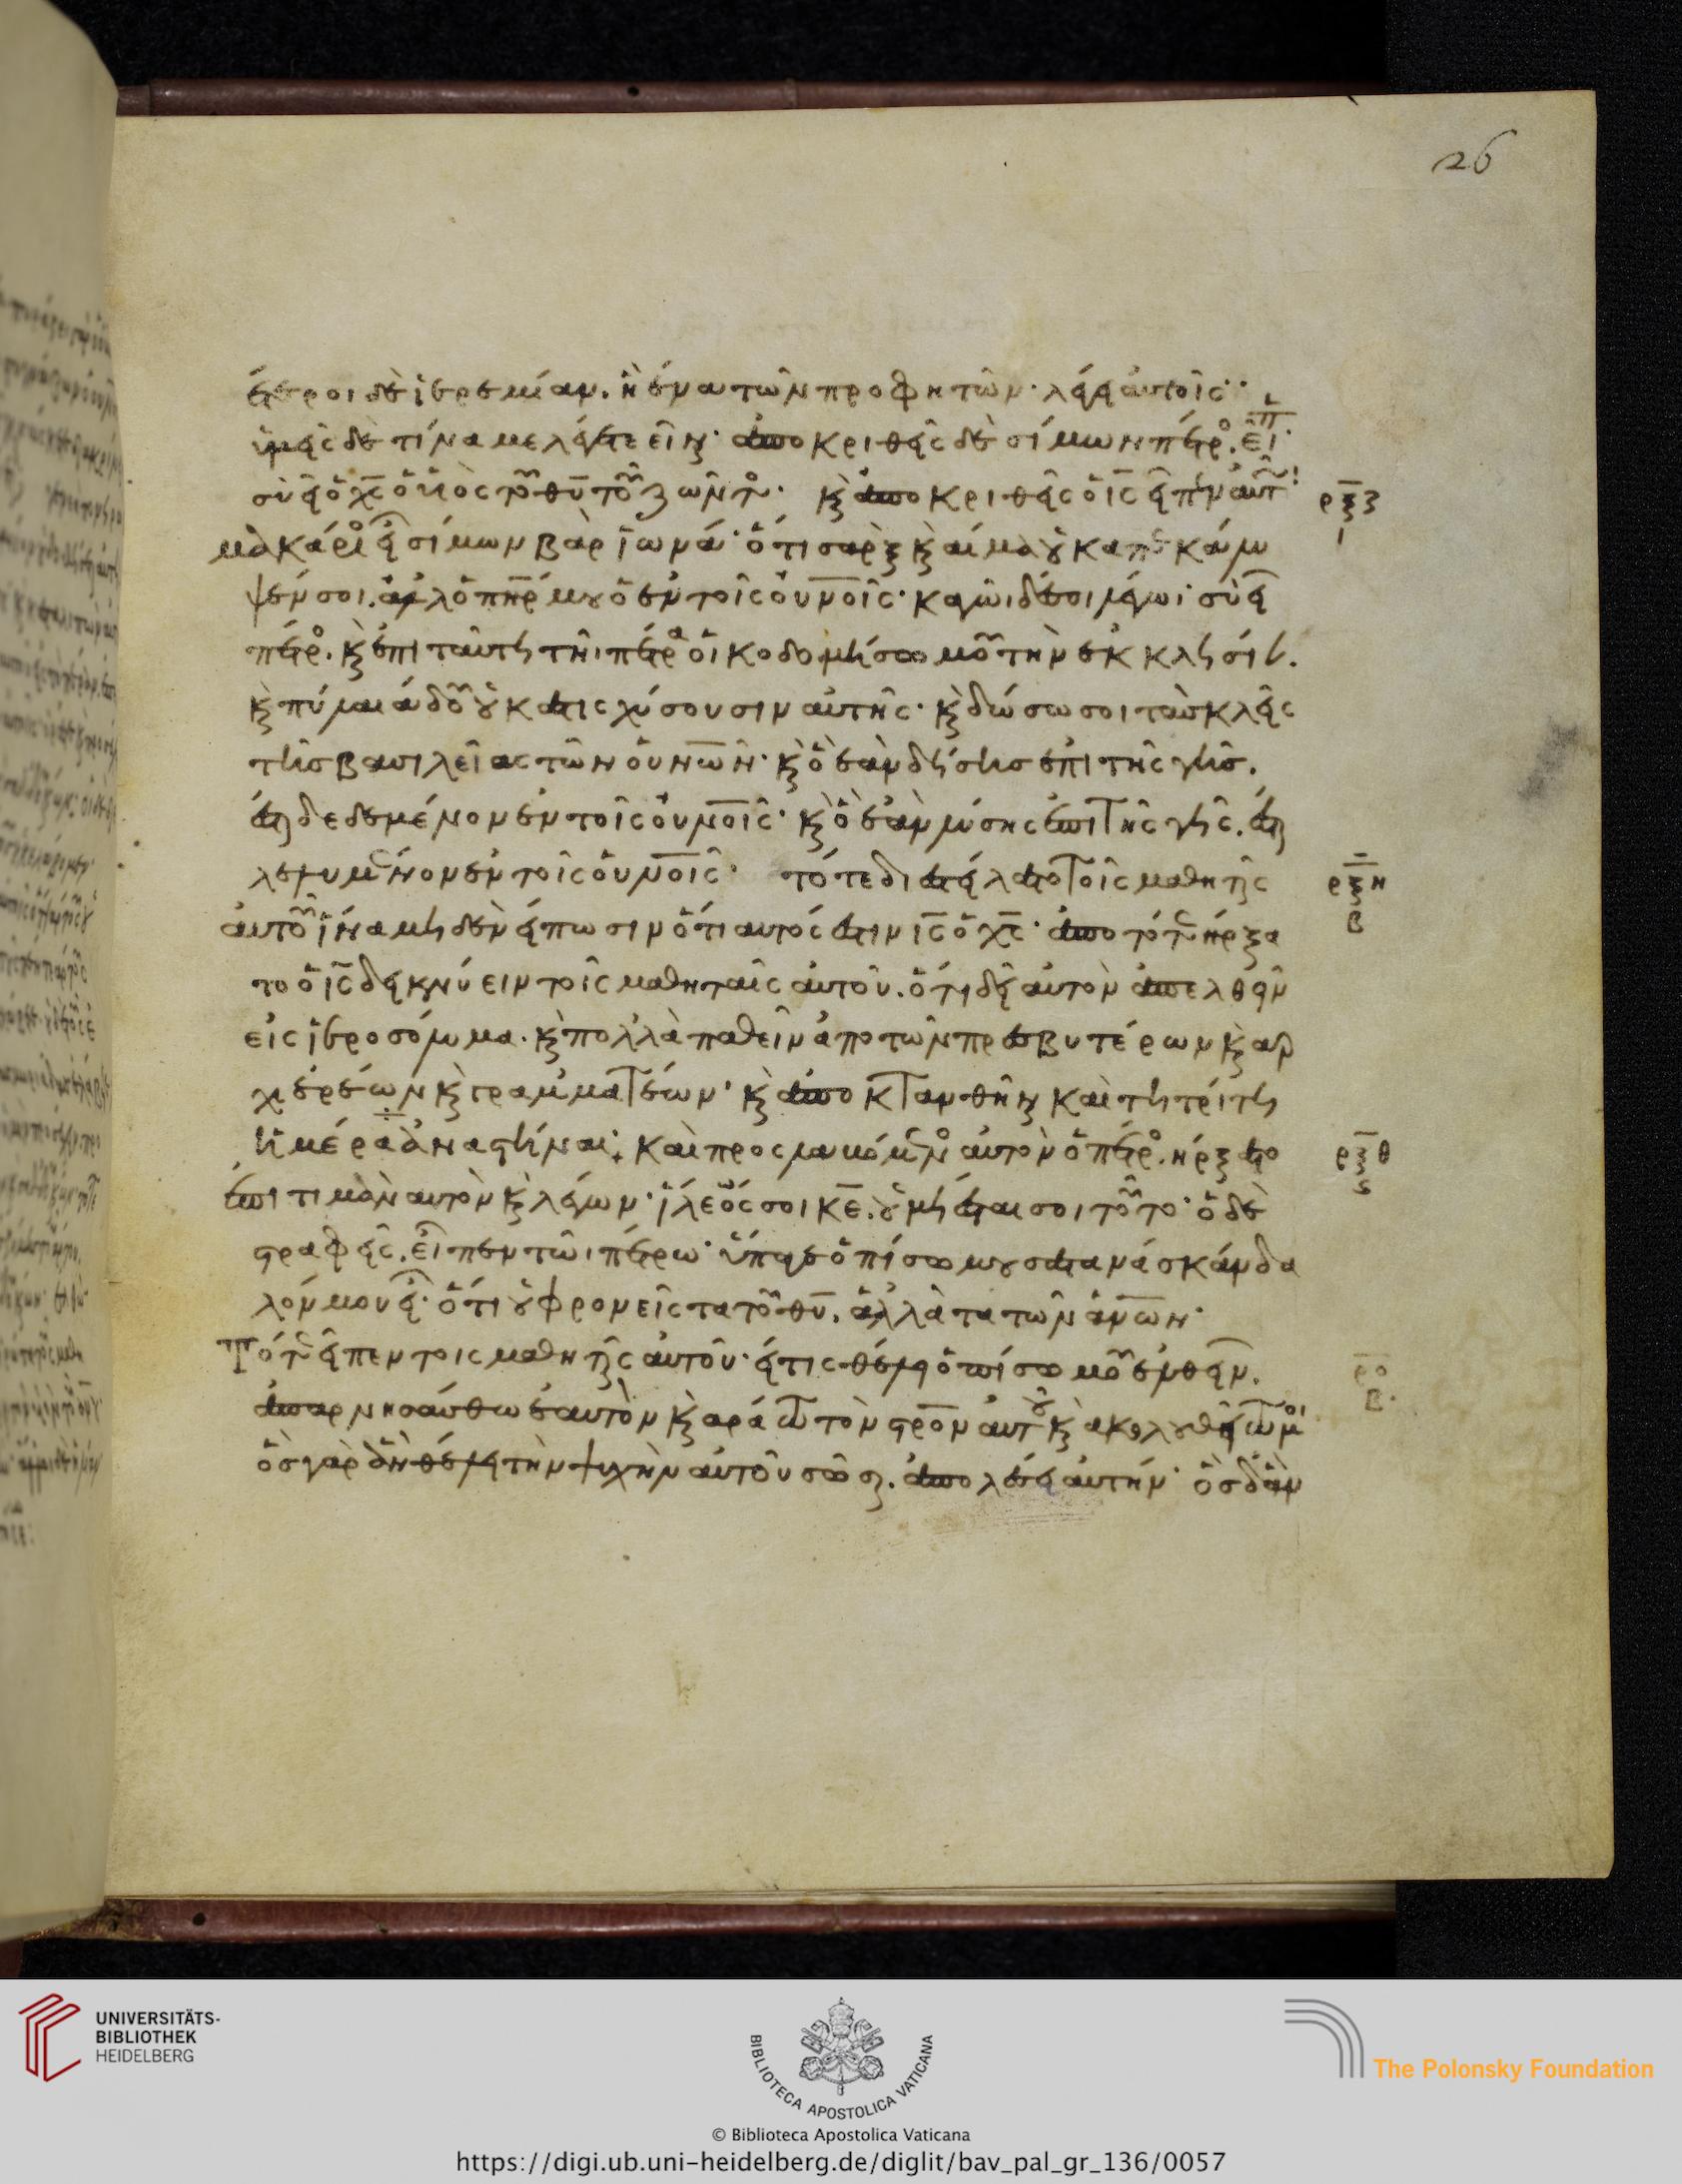 26
ἕτεροι δὲ ἱερεμίαν. ἢ ἕνα τῶν προφητῶν· λέγει αὐτοῖς·
ὑμεῖς δὲ τίνα με λέγετε εἶναι· ἀποκριθεὶς δὲ σίμων πέτρος. εἶπ·
σὺ εἶ ὁ χ̅ς̅ ὁ υἱὸς τοῦ θ̅υ̅ τοῦ ζῶντος· κ ἀποκριθεὶς ὁ ι̅ς̅ εἶπεν αὐτῶ
ρξζ
ι
μακάριος εἶ σίμων βὰρ ἰωνά· ὅτι σὰρξ κ αἷμα οὐκ ἀπεκάλυ
ψέν σοι. ἀλλ ὁ π̅η̅ρ̅ μου ὁ ἐν τοῖς οὐ̅ν̅ο̅ι̅ς̅· κἀγὼ δέ σοι λέγω· σὺ εἶ
πέτρος. κ ἐπὶ ταύτη τῆι πέτρα οἰκοδομήσω μοῦ τὴν ἐκκλησίαν.
κ πύλαι ἅδου οὐ κατισχύσουσιν αὐτῆς· κ δώσω σοι τὰς κλεῖς
τῆς βασιλείας τῶν οὐ̅ν̅ω̅ν̅· κ ὃ ἐὰν δήσης ἐπὶ τῆς γῆς.
ἔσται δεδεμένον ἐν τοῖς οὐ̅ν̅ο̅ι̅ς̅· κ ὃ ἐὰν λύσης ἐπὶ τῆς γῆς. ἔσται
λελυμένον ἐν τοῖς οὐ̅ν̅ο̅ι̅ς̅· τότε διεστείλατο τοῖς μαθηταῖς
ρξη
β
αὐτοῦ ἵνα μηδενὶ εἴπωσιν ὅτι αὐτός ἐστιν ι̅ς̅ ὁ χ̅ς̅· ἀπὸ τότε ἤρξα
το ὁ ι̅ς̅ δεικνύειν τοῖς μαθηταῖς αὐτοῦ. ὅτι δεῖ αὐτὸν ἀπελθεῖν
εἰς ἱεροσόλυμα. κ πολλὰ παθεῖν ἀπὸ τῶν πρεσβυτέρων κ ἀρ
χιερέων κ γραμματέων· κ ἀποκτανθῆναι καὶ τῆ τρίτη
ἡμέρα ἀναστῆναι· καὶ προσλαβόμενος αὐτὸν ὁ πέτρος. ἤρξατο
ρξθ
ς
ἐπιτιμᾶν αὐτὸν κ λέγων· ἵλεώς σοι κ̅ε̅. οὐ μὴ ἔσται σοι τοῦτο· ὁ δὲ
στραφεὶς. εἶπεν τῶι πέτρω· ὕπαγε ὀπίσω μου σατανά σκάνδα
λόν μου εἶ· ὅτι οὐ φρονεῖς τὰ τοῦ θ̅υ̅. ἀλλὰ τὰ τῶν ἀ̅ν̅ω̅ν̅·
Τότε εἶπεν τοῖς μαθηταῖς αὐτοῦ· εἴ τις θέλει ὀπίσω μοῦ ἐλθεῖν.
ρο
β
ἀπαρνησάσθω ἑαυτὸν κ ἀράτω τὸν σ̅τ̅ρ̅ο̅ν̅ αὐτοῦ κ ἀκολουθείτω μοι
ὃς γὰρ ἂν θέλη τὴν ψυχὴν αὐτοῦ σῶσαι. ἀπολέσει αὐτήν· ὃς δ ἂν
UNIVERSITÄTS-
BIBLIOTHEK
HEIDELBERG
BIBLIOTECA APOSTOLICA VATICANA
The Polonsky Foundation
© Biblioteca Apostolica Vaticana
https://digi.ub.uni-heidelberg.de/diglit/bav_pal_gr_136/0057